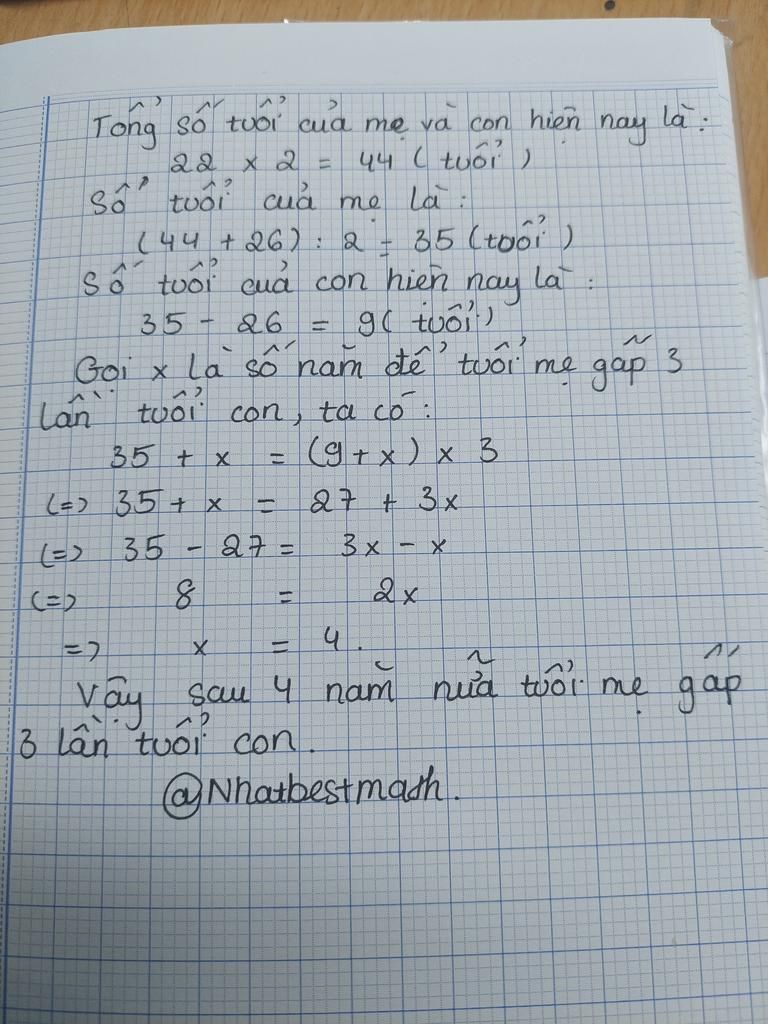 Tổng số tuổi của mẹ và con hiện nay là:
22 x 2 = 44 ( tuổi )
Số tuổi của mẹ là:
(44 + 26) : 2 = 35 (tuổi)
Số tuổi của con hiện nay là:
35 - 26 = 9( tuổi)
Gọi x là số năm để tuổi mẹ gấp 3
lần tuổi con, ta có:
35 + x = (9+x) x 3
(=) 35 + x = 27 + 3x
(=) 35 - 27 = 3x - x
(=) 8 = 2x
=) x = 4.
Vậy sau 4 năm nữa tuổi mẹ gấp
3 lần tuổi con.
@Nhatbestmath.